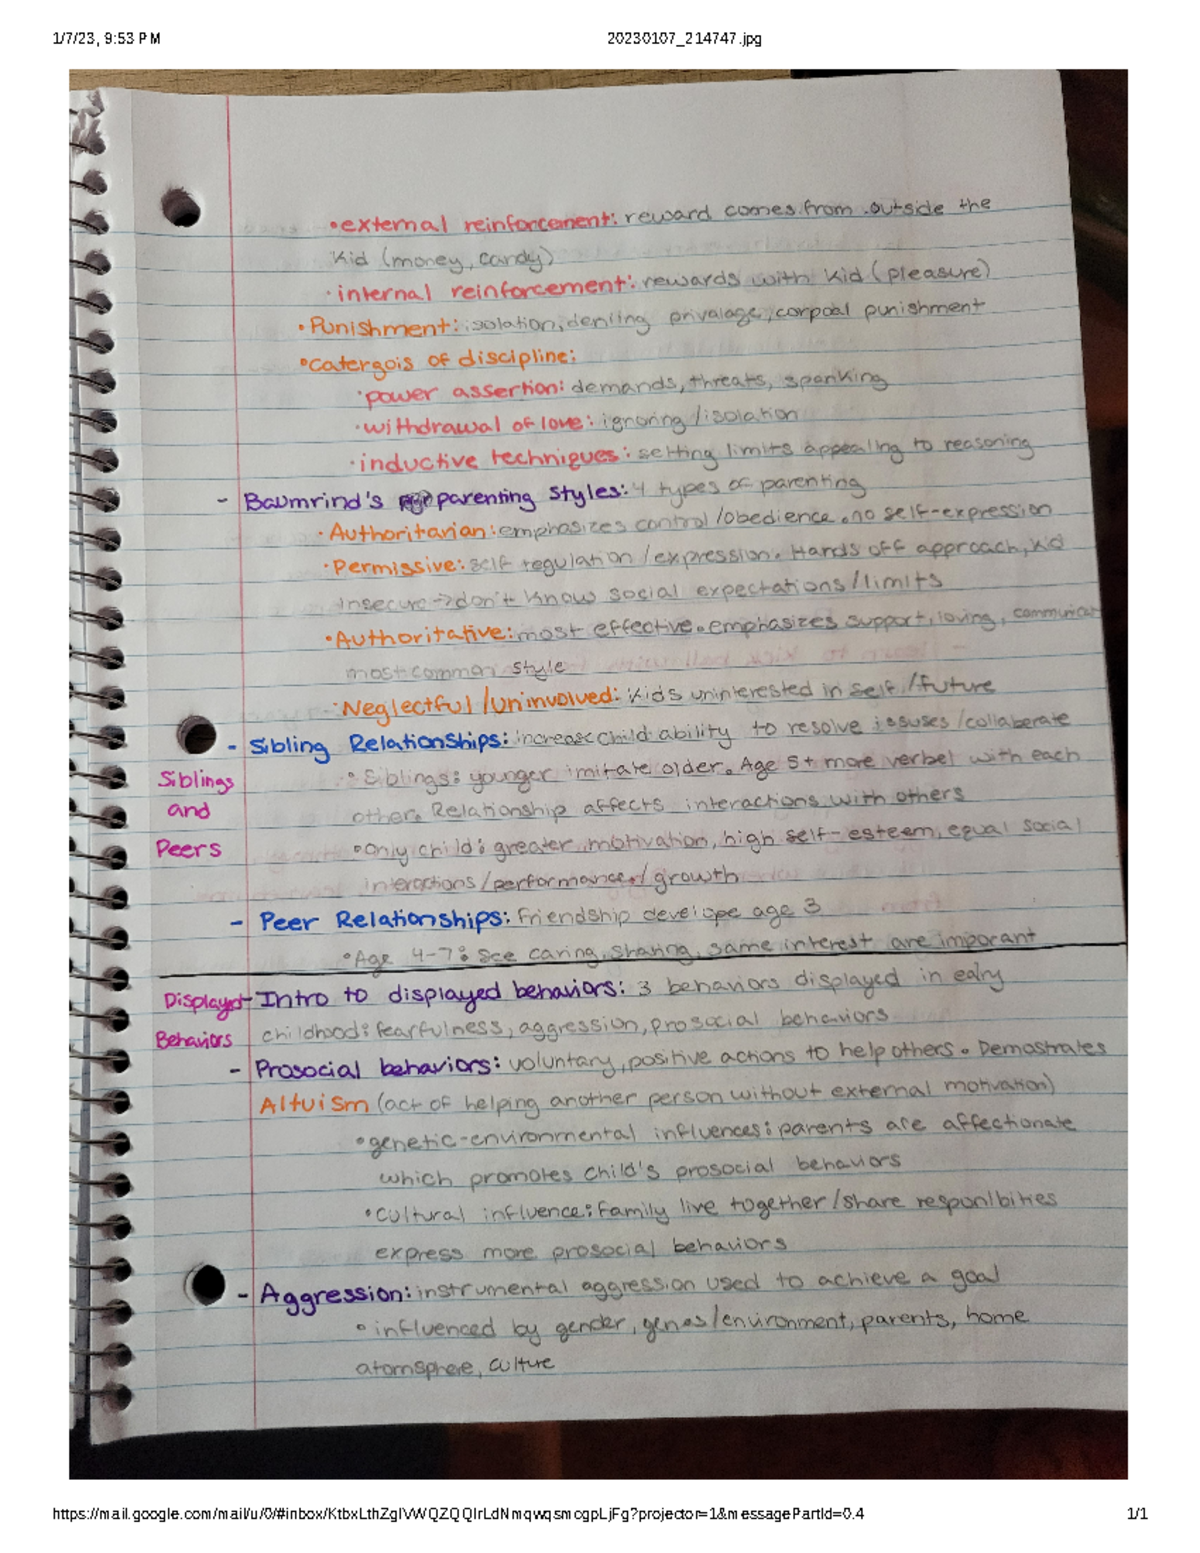 1/7/23, 9:53 PM
20230107_214747.jpg
•external reinforcement: reward comes from outside the
kid (money, candy)
·internal reinforcement: rewards with kid (pleasure)
•Punishment: isolation, denling privalage, corpoal punishment
•catergois of discipline:
·power assertion: demands, threats, spanking
·withdrawal of love: ignoring/isolation
·inductive techniques: setting limits appealing to reasoning
- Baumrind's parenting styles: 4 types of parenting
·Authoritarian: emphasizes control/obedience. no self-expression
·Permissive: self regulation/expression. Hands off approach, kid
insecure→don't know social expectations/limits
•Authoritative: most effective. emphasizes support, loving, communicat
most common style
·Neglectful/uninvolved: kids uninterested in self/future
- Sibling Relationships: increase child ability to resolve issuses/collaberate
Siblings
and
Peers
•Siblings: younger imitate older. Age 5+ more verbel with each
other. Relationship affects interactions with others
•Only child: greater motivation, high self-esteem, equal social
interactions/performance/growth
- Peer Relationships: Friendship develope age 3
•Age 4-7: See caring, sharing, same interest are imporant
Displayed
Behaviors
- Intro to displayed behaviors: 3 behaviors displayed in ealry
childhood: fearfulness, aggression, prosocial behaviors
- Prosocial behaviors: voluntary, positive actions to help others. Demostrates
Altuism (act of helping another person without external motivation)
•genetic-environmental influences: parents are affectionate
which promotes child's prosocial behaviors
•cultural influence: family live together/share responlbities
express more prosocial behaviors
- Aggression: instrumental aggression used to achieve a goal
•influenced by gender, genes/environment, parents, home
atomsphere, culture
1/1